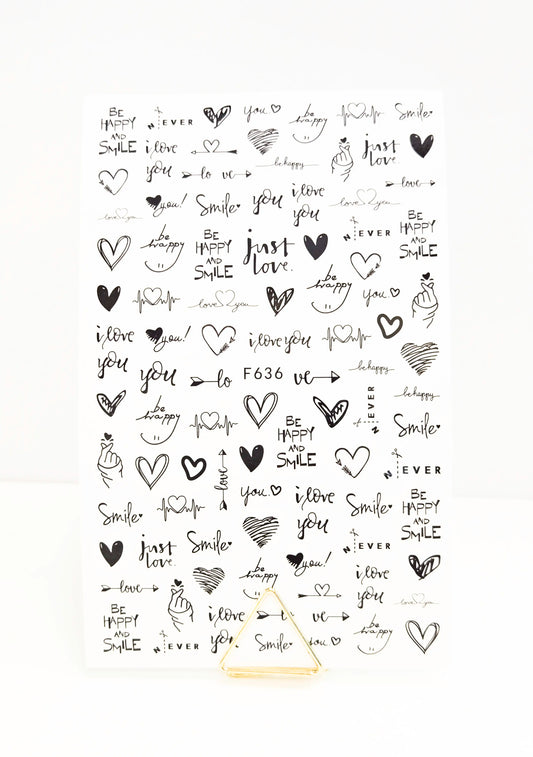 BE
HAPPY
AND
SMILE
N EVER
you
be
happy
Smile
i love
you
lo ve
be happy
just
love.
love
love you
you!
Smile
you
i love
you
love you
N EVER
BE
HAPPY
AND
SMILE
be
happy
BE
HAPPY
AND
SMILE
just
love.
be
happy
love you
you
i love
you
you!
i love you
be happy
you
lo
F636
ve
be happy
be
happy
N EVER
Smile
BE
HAPPY
AND
SMILE
love
N EVER
Smile
you
i love
you
Smile
BE
HAPPY
AND
SMILE
just
love.
Smile
be
happy
you!
N EVER
i love
you
love
lo ve
love you
BE
HAPPY
AND
SMILE
N EVER
i love
you
Smile
you
be
happy